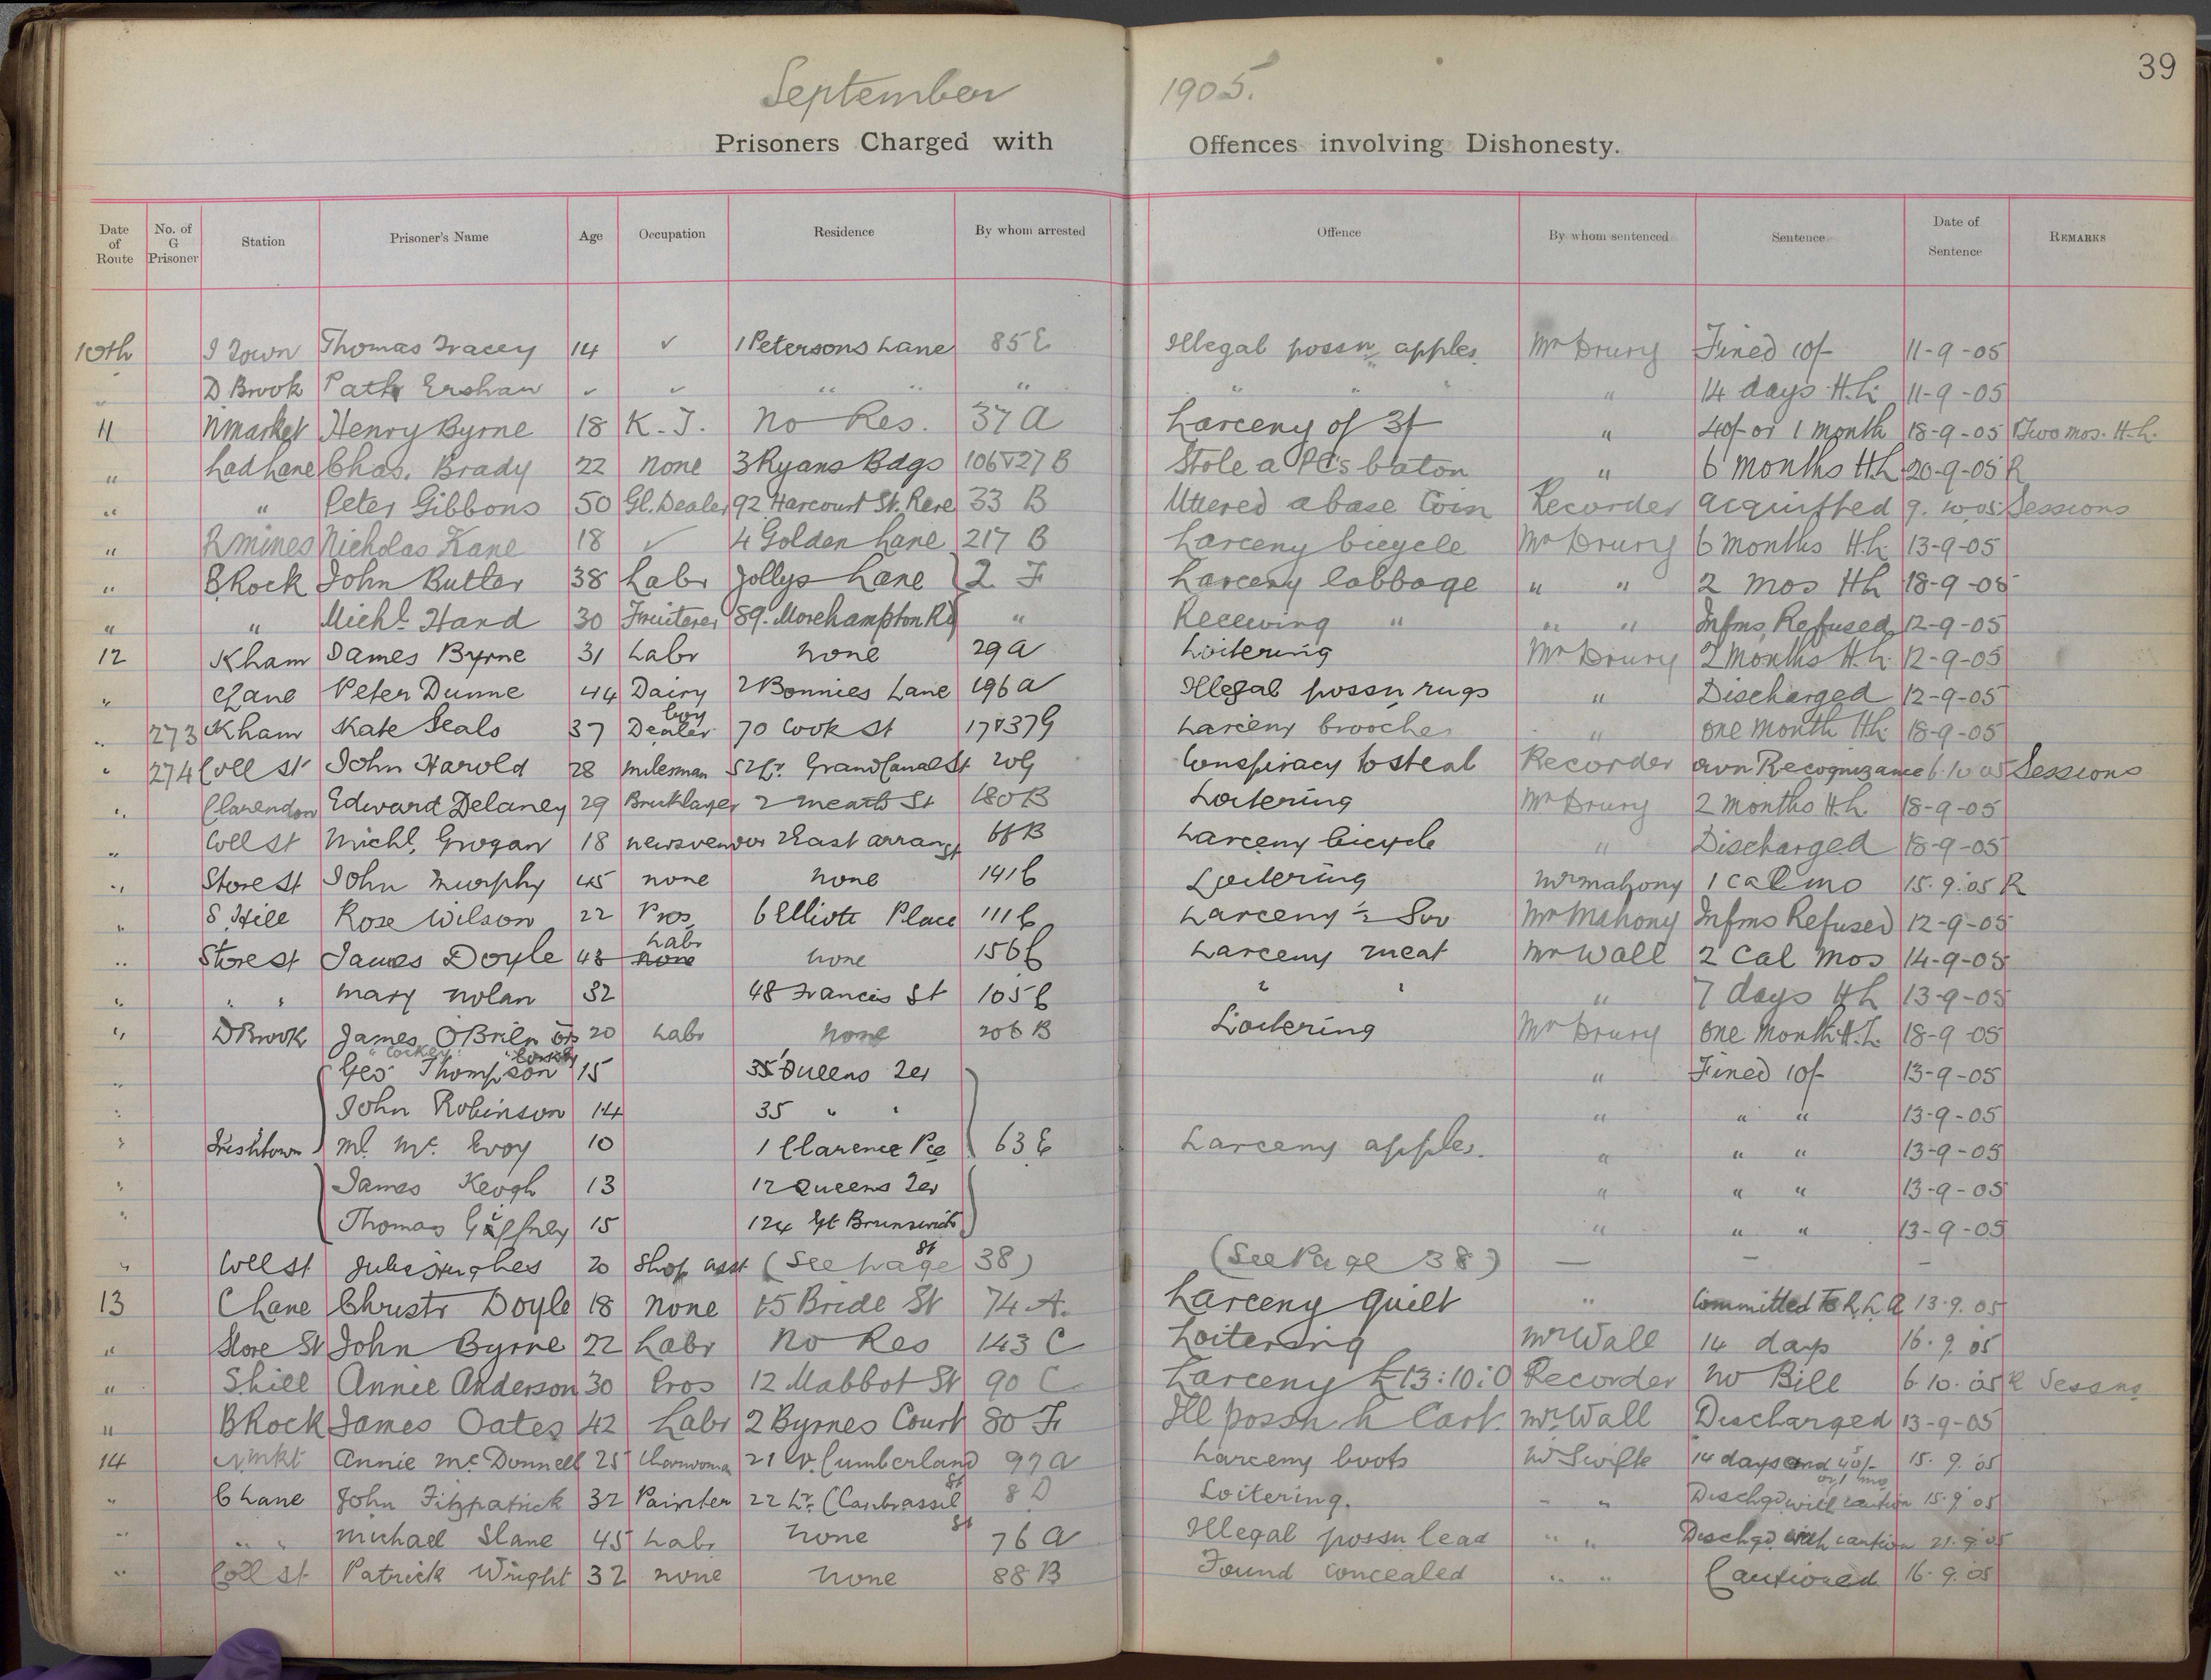 39
September 1905.
Prisoners Charged with Offences involving Dishonesty.
Date of Route No. of G Prisoner Station Prisoner's Name Age Occupation Residence By whom arrested Offence By whom sentenced Sentence Date of Sentence REMARKS
10th I Town Thomas Tracey 14 ✓ 1 Petersons Lane 85 E Illegal possn apples Mr Drury Fined 10/- 11-9-05
" D Brook Patk Ershaw ✓ ✓ " " " " " " " 14 days H.L. 11-9-05
11 Nmarket Henry Byrne 18 K.J. No Res. 37 A Larceny of 3/- " 40/- or 1 month 18-9-05 Two mos. H.L.
" Lad Lane Chas. Brady 22 none 3 Ryans Bdgs 106 & 27 B Stole a PC's baton " 6 months H.L 20-9-05 R
" " Peter Gibbons 50 Gl. Dealer 92 Harcourt St. Rere 33 B Uttered a base Coin Recorder acquitted 9.10.05 Sessions
" Rmines Nicholas Kane 18 ✓ 4 Golden Lane 217 B Larceny bicycle Mr Drury 6 months H.L 13-9-05
" BRock John Butler 38 Labr Jollys Lane } 2 F Larceny Cabbage " " 2 mos HL 18-9-05
" " Michl Hand 30 Fruiterer 89. Morehampton Rd } " Receiving " " " Infms. Refused 12-9-05
12 Kham James Byrne 31 Labr none 29 A Loitering Mr Drury 2 Months H.L. 12-9-05
" CLane Peter Dunne 44 Dairy boy 2 Bonnies Lane 196 A Illegal possn rugs " Discharged 12-9-05
" 273 Kham Kate Seals 37 Dealer 70 Cook St 17 & 37 G Larceny brooches " one month H.L. 18-9-05
" 274 Coll St John Harold 28 milesman 52 Lr. Grand Canal St 20 G Conspiracy to steal Recorder own Recognizance 6.10.05 Sessions
" Clarendon Edward Delaney 29 Bricklayer 2 Meath St 180 B Loitering Mr Drury 2 months H.L. 18-9-05
" Coll St Michl. Grogan 18 newsvendor 2 East arran St 6f B Larceny bicycle " Discharged 18-9-05
" Store St John Murphy 45 none none 141 C Loitering Mr Mahony 1 cal mo 15.9.05 R
" S. Hill Rose Wilson 22 Pros 6 Elliott Place 111 C Larceny ½ Sov Mr Mahony Infms Refused 12-9-05
" Store st James Doyle 43 none Labr none 156 C Larceny meat Mr Wall 2 Cal Mos 14-9-05
" " " Mary Nolan 32 48 Francis St 105 C " " " 7 days HL 13-9-05
" DBrook James O'Brien or 20 Labr none 206 B Loitering Mr Drury one Month H.L. 18-9-05
" { Geo Thompson 15 35 Queens Ter } " Fined 10/- 13-9-05
" John Robinson 14 35 " " " " " 13-9-05
" Irishtown Ml. Mc. Evoy 10 1 Clarence Pce 63 E Larceny apples. " " " 13-9-05
" James Keogh 13 12 Queens Ter " " " 13-9-05
" Thomas Gaffney 15 124 Gt Brunswick St " " " 13-9-05
" Coll st Julia Hughes 20 Shop asst (See page 38) (See Page 38) — — —
13 C Lane Christr Doyle 18 none 15 Bride St 74 A. Larceny quilt " Committed to R.C.A 13.9.05
" Store St John Byrne 22 Labr No Res 143 C Loitering Mr Wall 14 days 16.9.05
" S.hill Annie Anderson 30 Pros 12 Mabbot St 90 C Larceny £13:10:0 Recorder No Bill 6.10.05 R Sessns
" BRock James Oates 42 Labr 2 Byrnes Court 80 F Ill possn h Cart. Mr Wall Discharged 13-9-05
14 Nmkt Annie Mc Donnell 25 Charwoman 21 Cumberland St 97 A Larceny boots Mr Swifte 14 days and 40/- or 1 mo 15.9.05
" C Lane John Fitzpatrick 32 Painter 22 Lr. Clanbrassil St 8 D Loitering. " " Dischgd with caution 15.9.05
" " " Michael Slane 45 Labr. none 76 A Illegal possn lead " " Dischgd with caution 21.9.05
" Coll st Patrick Wright 32 none none 88 B Found concealed " " Cautioned 16.9.05